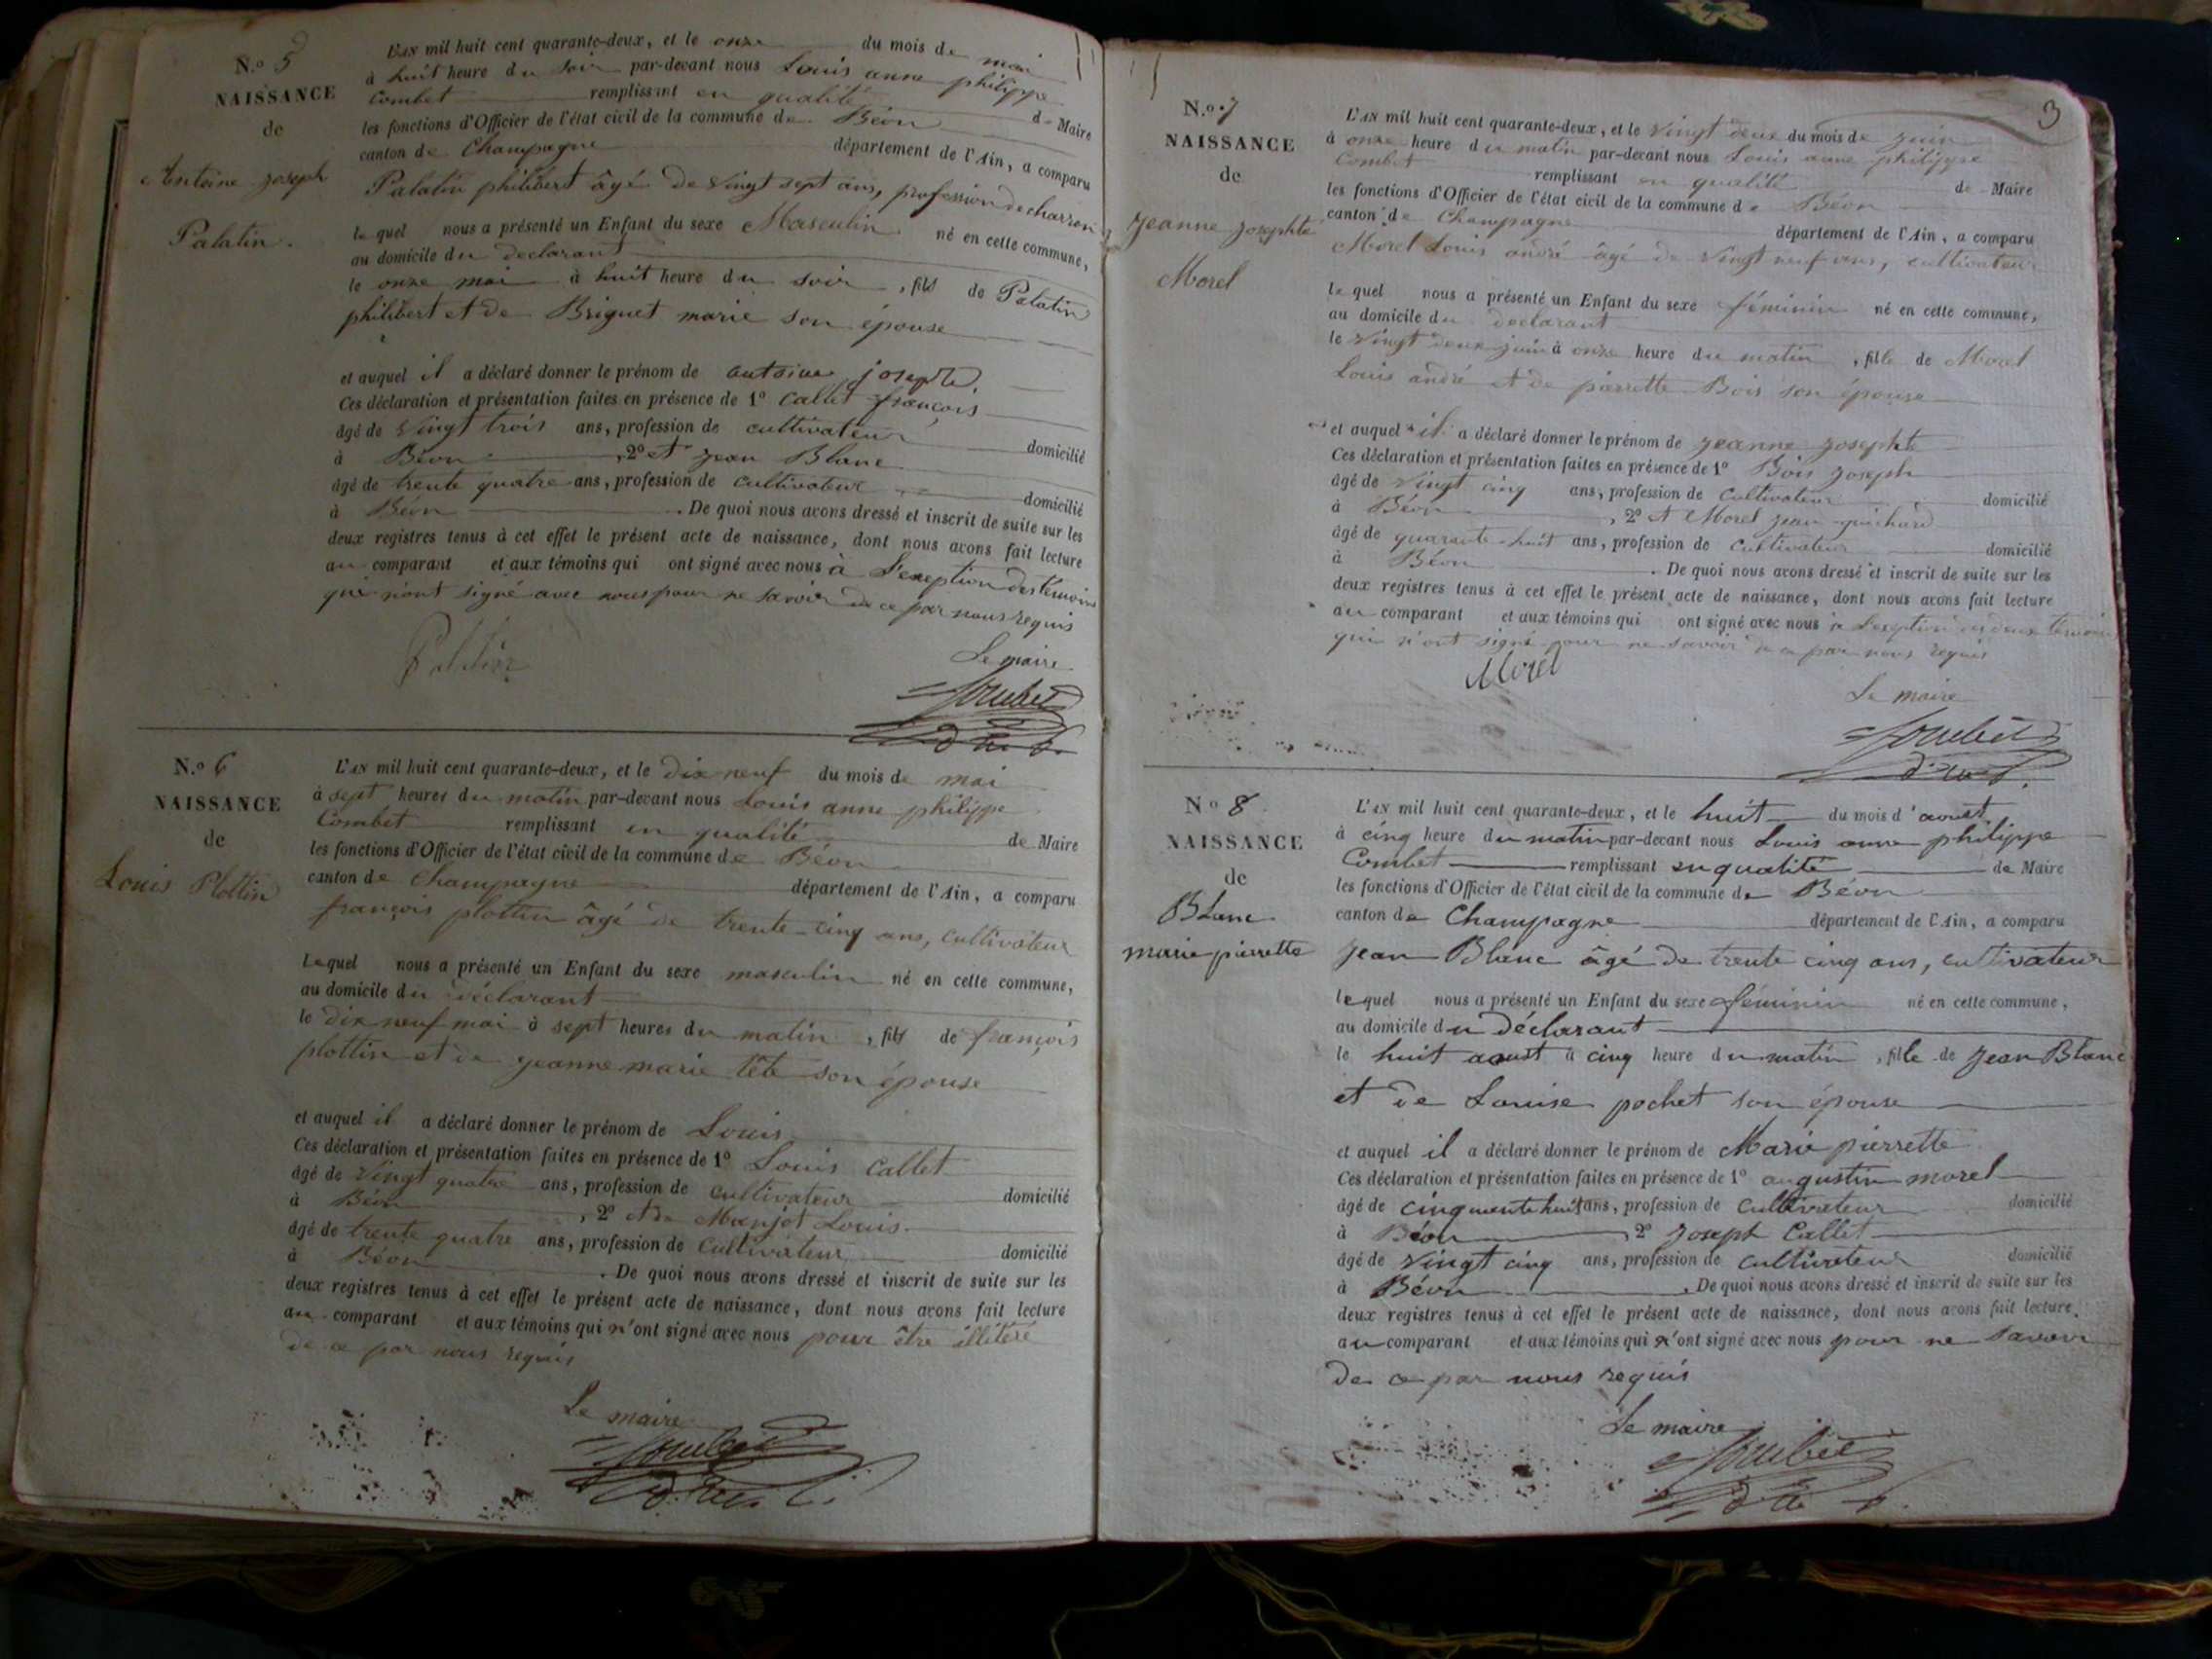 N.° 5
NAISSANCE
de
Antoine Joseph
Palatin.
L'AN mil huit cent quarante-deux, et le onze du mois de mai
à huit heure du soir par-devant nous Louis anne philippe
Combet remplissant en qualité de Maire
les fonctions d'Officier de l'état civil de la commune de Béon
canton de Champagne département de l'Ain, a comparu
Palatin philibert âgé de vingt sept ans, profession de charron
lequel nous a présenté un Enfant du sexe Masculin né en cette commune,
au domicile du declarant
le onze mai à huit heure du soir, fils de Palatin
philibert et de Briguet marie son épouse
et auquel il a déclaré donner le prénom de antoine joseph.
Ces déclaration et présentation faites en présence de 1° Callet françois
âgé de vingt trois ans, profession de cultivateur domicilié
à Béon, 2° et jean Blanc
âgé de trente quatre ans, profession de cultivateur domicilié
à Béon. De quoi nous avons dressé et inscrit de suite sur les
deux registres tenus à cet effet le présent acte de naissance, dont nous avons fait lecture
au comparant et aux témoins qui ont signé avec nous à l'exeption des témoins
qui n'ont signé avec nous pour ne savoir de ce par nous requis
Le maire
Combet
N.° 6
NAISSANCE
de
Louis Plottin
L'AN mil huit cent quarante-deux, et le dix neuf du mois de mai
à sept heures du matin par-devant nous Louis anne philippe
Combet remplissant en qualité de Maire
les fonctions d'Officier de l'état civil de la commune de Béon
canton de Champagne département de l'Ain, a comparu
françois plottin âgé de trente cinq ans, cultivateur
Lequel nous a présenté un Enfant du sexe masculin né en cette commune,
au domicile du déclarant
le dix neuf mai à sept heures du matin, fils de françois
plottin et de jeanne marie tête son épouse
et auquel il a déclaré donner le prénom de Louis
Ces déclaration et présentation faites en présence de 1° Louis Callet
âgé de vingt quatre ans, profession de cultivateur domicilié
à Béon, 2° et de Manjot Louis
âgé de trente quatre ans, profession de cultivateur domicilié
à Béon. De quoi nous avons dressé et inscrit de suite sur les
deux registres tenus à cet effet le présent acte de naissance, dont nous avons fait lecture
au comparant et aux témoins qui n'ont signé avec nous pour être illitéré
de ce par nous requis
Le maire
Combet
3
N.° 7
NAISSANCE
de
Jeanne Josephte
Morel
L'AN mil huit cent quarante-deux, et le vingt deux du mois de juin
à onze heure du matin par-devant nous Louis anne philippe
Combet remplissant en qualité de Maire
les fonctions d'Officier de l'état civil de la commune de Béon
canton de Champagne département de l'Ain, a comparu
Morel Louis andré âgé de vingt neuf ans, cultivateur
lequel nous a présenté un Enfant du sexe féminin né en cette commune,
au domicile du declarant
le vingt deux juin à onze heure du matin, fille de Morel
Louis andré et de pierrette Bois son épouse
et auquel il a déclaré donner le prénom de jeanne josephte
Ces déclaration et présentation faites en présence de 1° Bois joseph
âgé de vingt cinq ans, profession de cultivateur domicilié
à Béon, 2° et Morel jean guichard
âgé de quarante huit ans, profession de cultivateur domicilié
à Béon. De quoi nous avons dressé et inscrit de suite sur les
deux registres tenus à cet effet le présent acte de naissance, dont nous avons fait lecture
au comparant et aux témoins qui ont signé avec nous à l'exeption des deux témoins
qui n'ont signé pour ne savoir de ce par nous requis
Morel
Le maire
Combet
N° 8
NAISSANCE
de
Blanc
marie pierrette
L'AN mil huit cent quarante-deux, et le huit du mois d'aoust
à cinq heure du matin par-devant nous Louis anne philippe
Combet remplissant en qualité de Maire
les fonctions d'Officier de l'état civil de la commune de Béon
canton de Champagne département de l'Ain, a comparu
jean Blanc âgé de trente cinq ans, cultivateur
lequel nous a présenté un Enfant du sexe féminin né en cette commune,
au domicile du déclarant
le huit aoust à cinq heure du matin, fille de jean Blanc
et de Louise pochet son épouse
et auquel il a déclaré donner le prénom de Marie pierrette
Ces déclaration et présentation faites en présence de 1° augustin morel
âgé de cinquante huit ans, profession de cultivateur domicilié
à Béon 2° joseph Callet
âgé de vingt cinq ans, profession de cultivateur domicilié
à Béon. De quoi nous avons dressé et inscrit de suite sur les
deux registres tenus à cet effet le présent acte de naissance, dont nous avons fait lecture
au comparant et aux témoins qui n'ont signé avec nous pour ne savoir
de ce par nous requis
Le maire
Combet